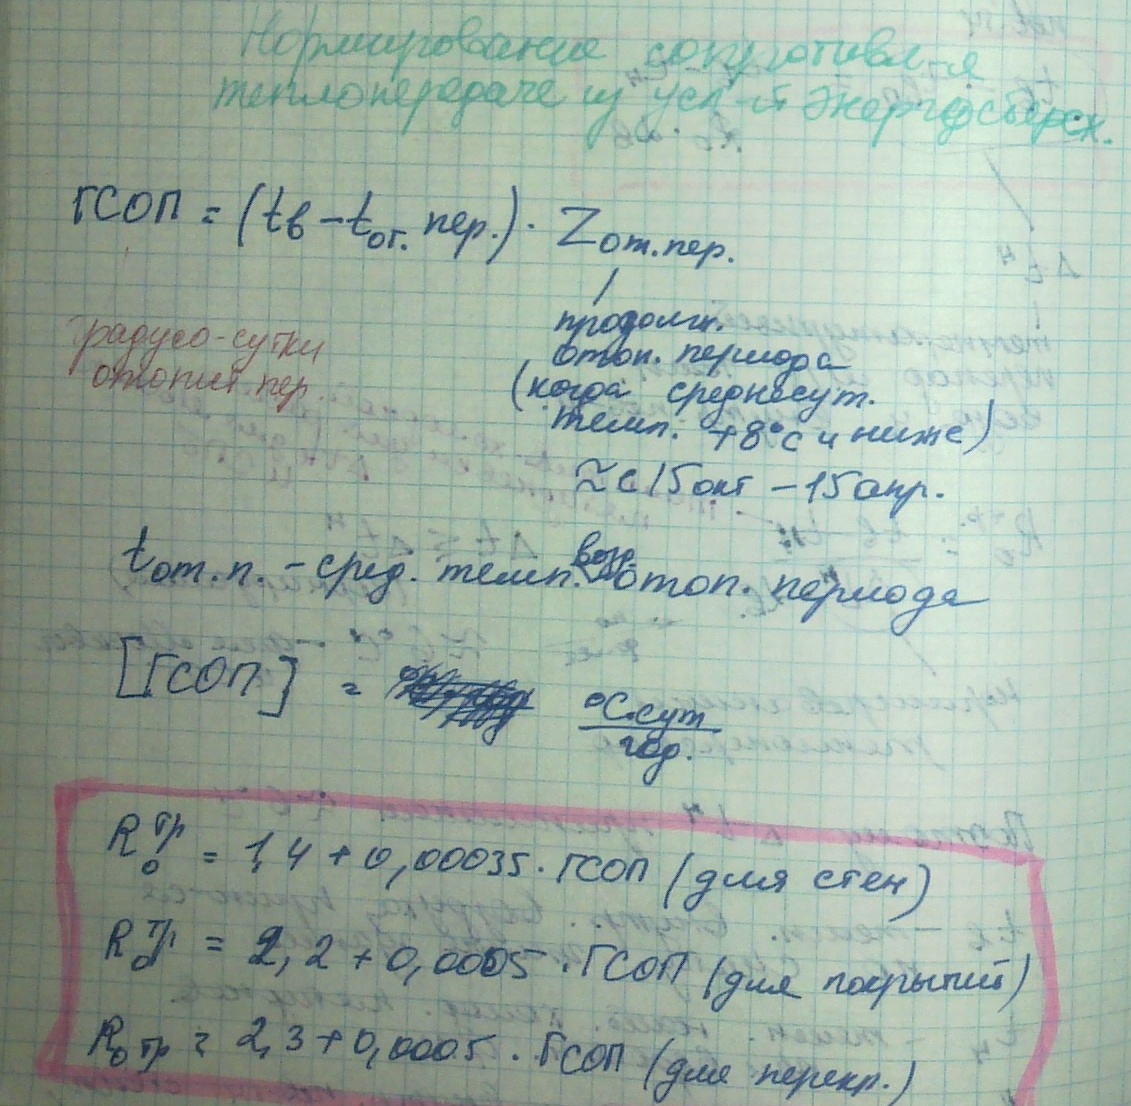 Нормирование сопротивл-я
теплопередаче из усл-й энергосбереж.
ГСОП = (tв - tот. пер.) · Zот.пер.
градусо-сутки
отопит пер.
продолж.
отоп. периода
(когда среднесут.
темп. +8°С и ниже)
≈ с 15 окт - 15 апр.
tот.п. - сред. темп. воз. отоп. периода
[ГСОП] = °С·сут
год.
R₀ᵗᵖ = 1,4 + 0,00035 · ГСОП (для стен)
R₀ᵗᵖ = 2,2 + 0,0005 · ГСОП (для покрытий)
R₀ тр = 2,3 + 0,0005 · ГСОП (для перекр.)